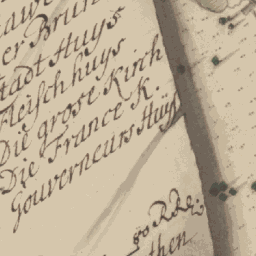 er Brun
Stadt Huÿs
Fleisch huÿs
Die grose Kirch
Die France K.
Gouverneurs Huÿs
80 R
then